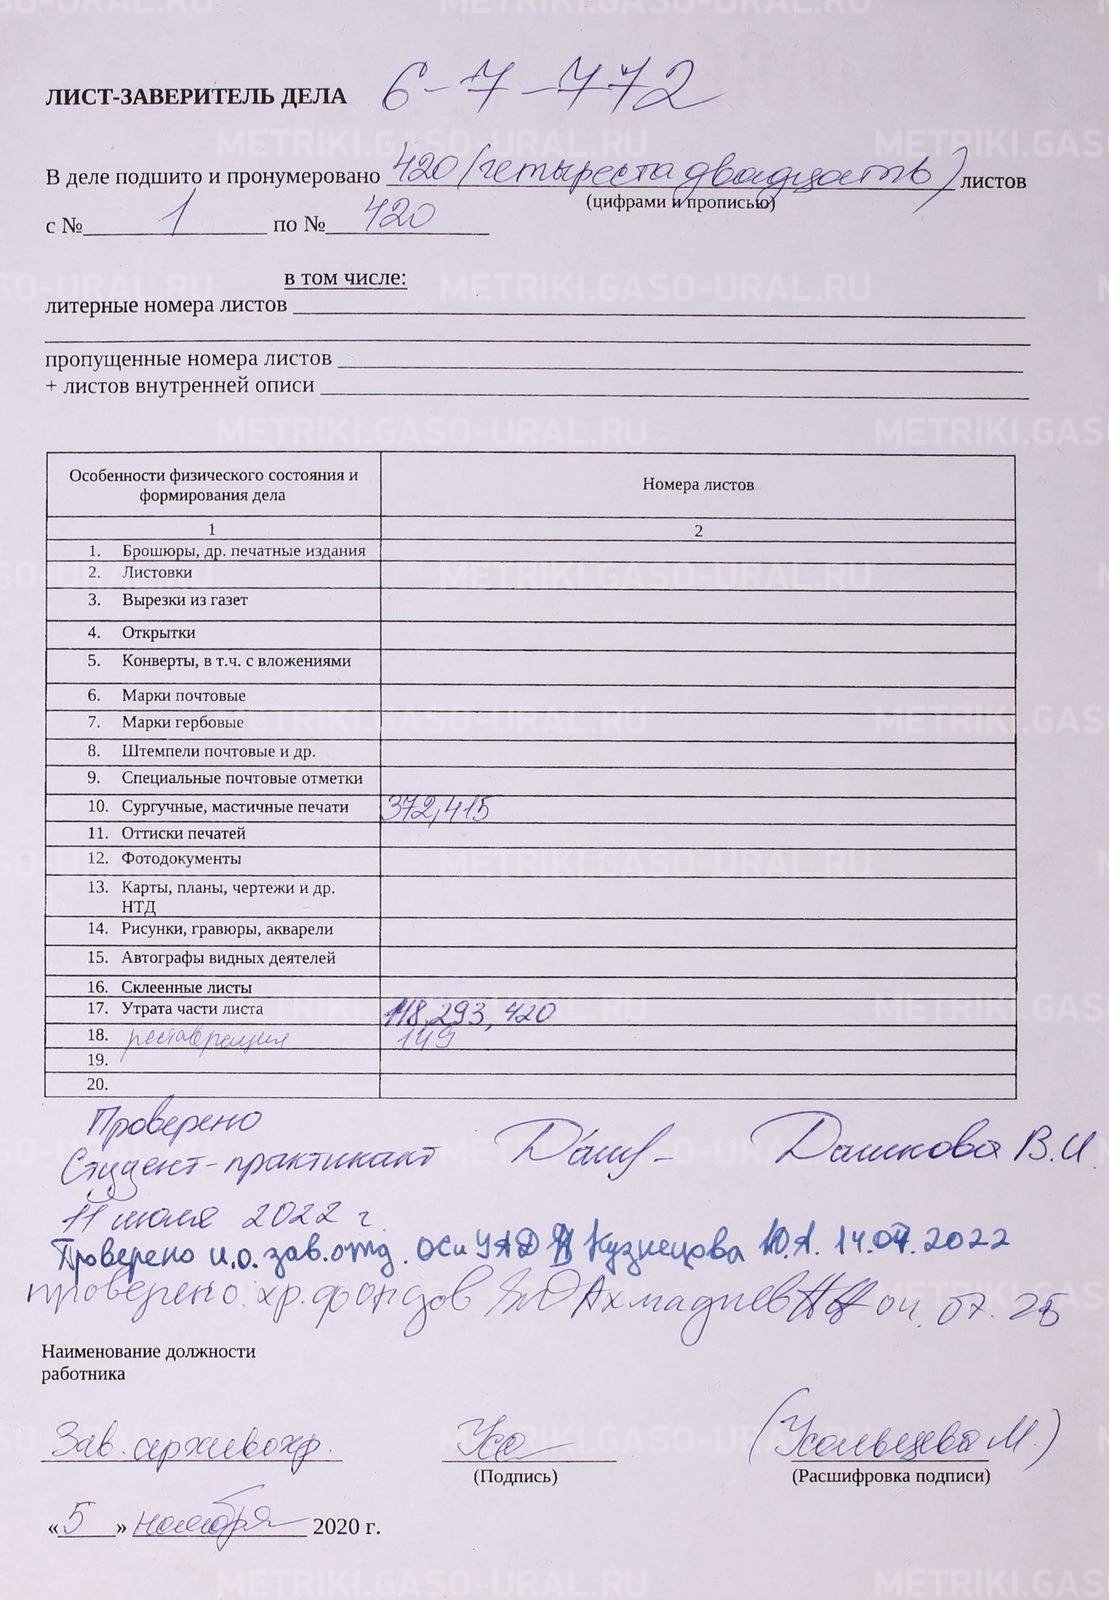 ЛИСТ-ЗАВЕРИТЕЛЬ ДЕЛА 6-7-772
В деле подшито и пронумеровано 420 (четыреста двадцать) листов
(цифрами и прописью)
с № 1 по № 420
в том числе:
литерные номера листов
пропущенные номера листов
+ листов внутренней описи
Особенности физического состояния и формирования дела
Номера листов
1 2
1. Брошюры, др. печатные издания
2. Листовки
3. Вырезки из газет
4. Открытки
5. Конверты, в т.ч. с вложениями
6. Марки почтовые
7. Марки гербовые
8. Штемпели почтовые и др.
9. Специальные почтовые отметки
10. Сургучные, мастичные печати 372,415
11. Оттиски печатей
12. Фотодокументы
13. Карты, планы, чертежи и др.
НТД
14. Рисунки, гравюры, акварели
15. Автографы видных деятелей
16. Склеенные листы
17. Утрата части листа 118,293,420
18. реставрация 149
19.
20.
Проверено
Студент-практикант Дашкова В.И.
11 июля 2022 г.
Проверено и.о. зав.отд. ОСиУАД Кузнецова Ю.А. 14.07.2022
проверено хр.фондов Ахмадиев 04.07.25
Наименование должности
работника
Зав. архивохр. Усо (Усольцева М.)
(Подпись) (Расшифровка подписи)
«5» ноября 2020 г.
METRIKI.GASO-URAL.RU